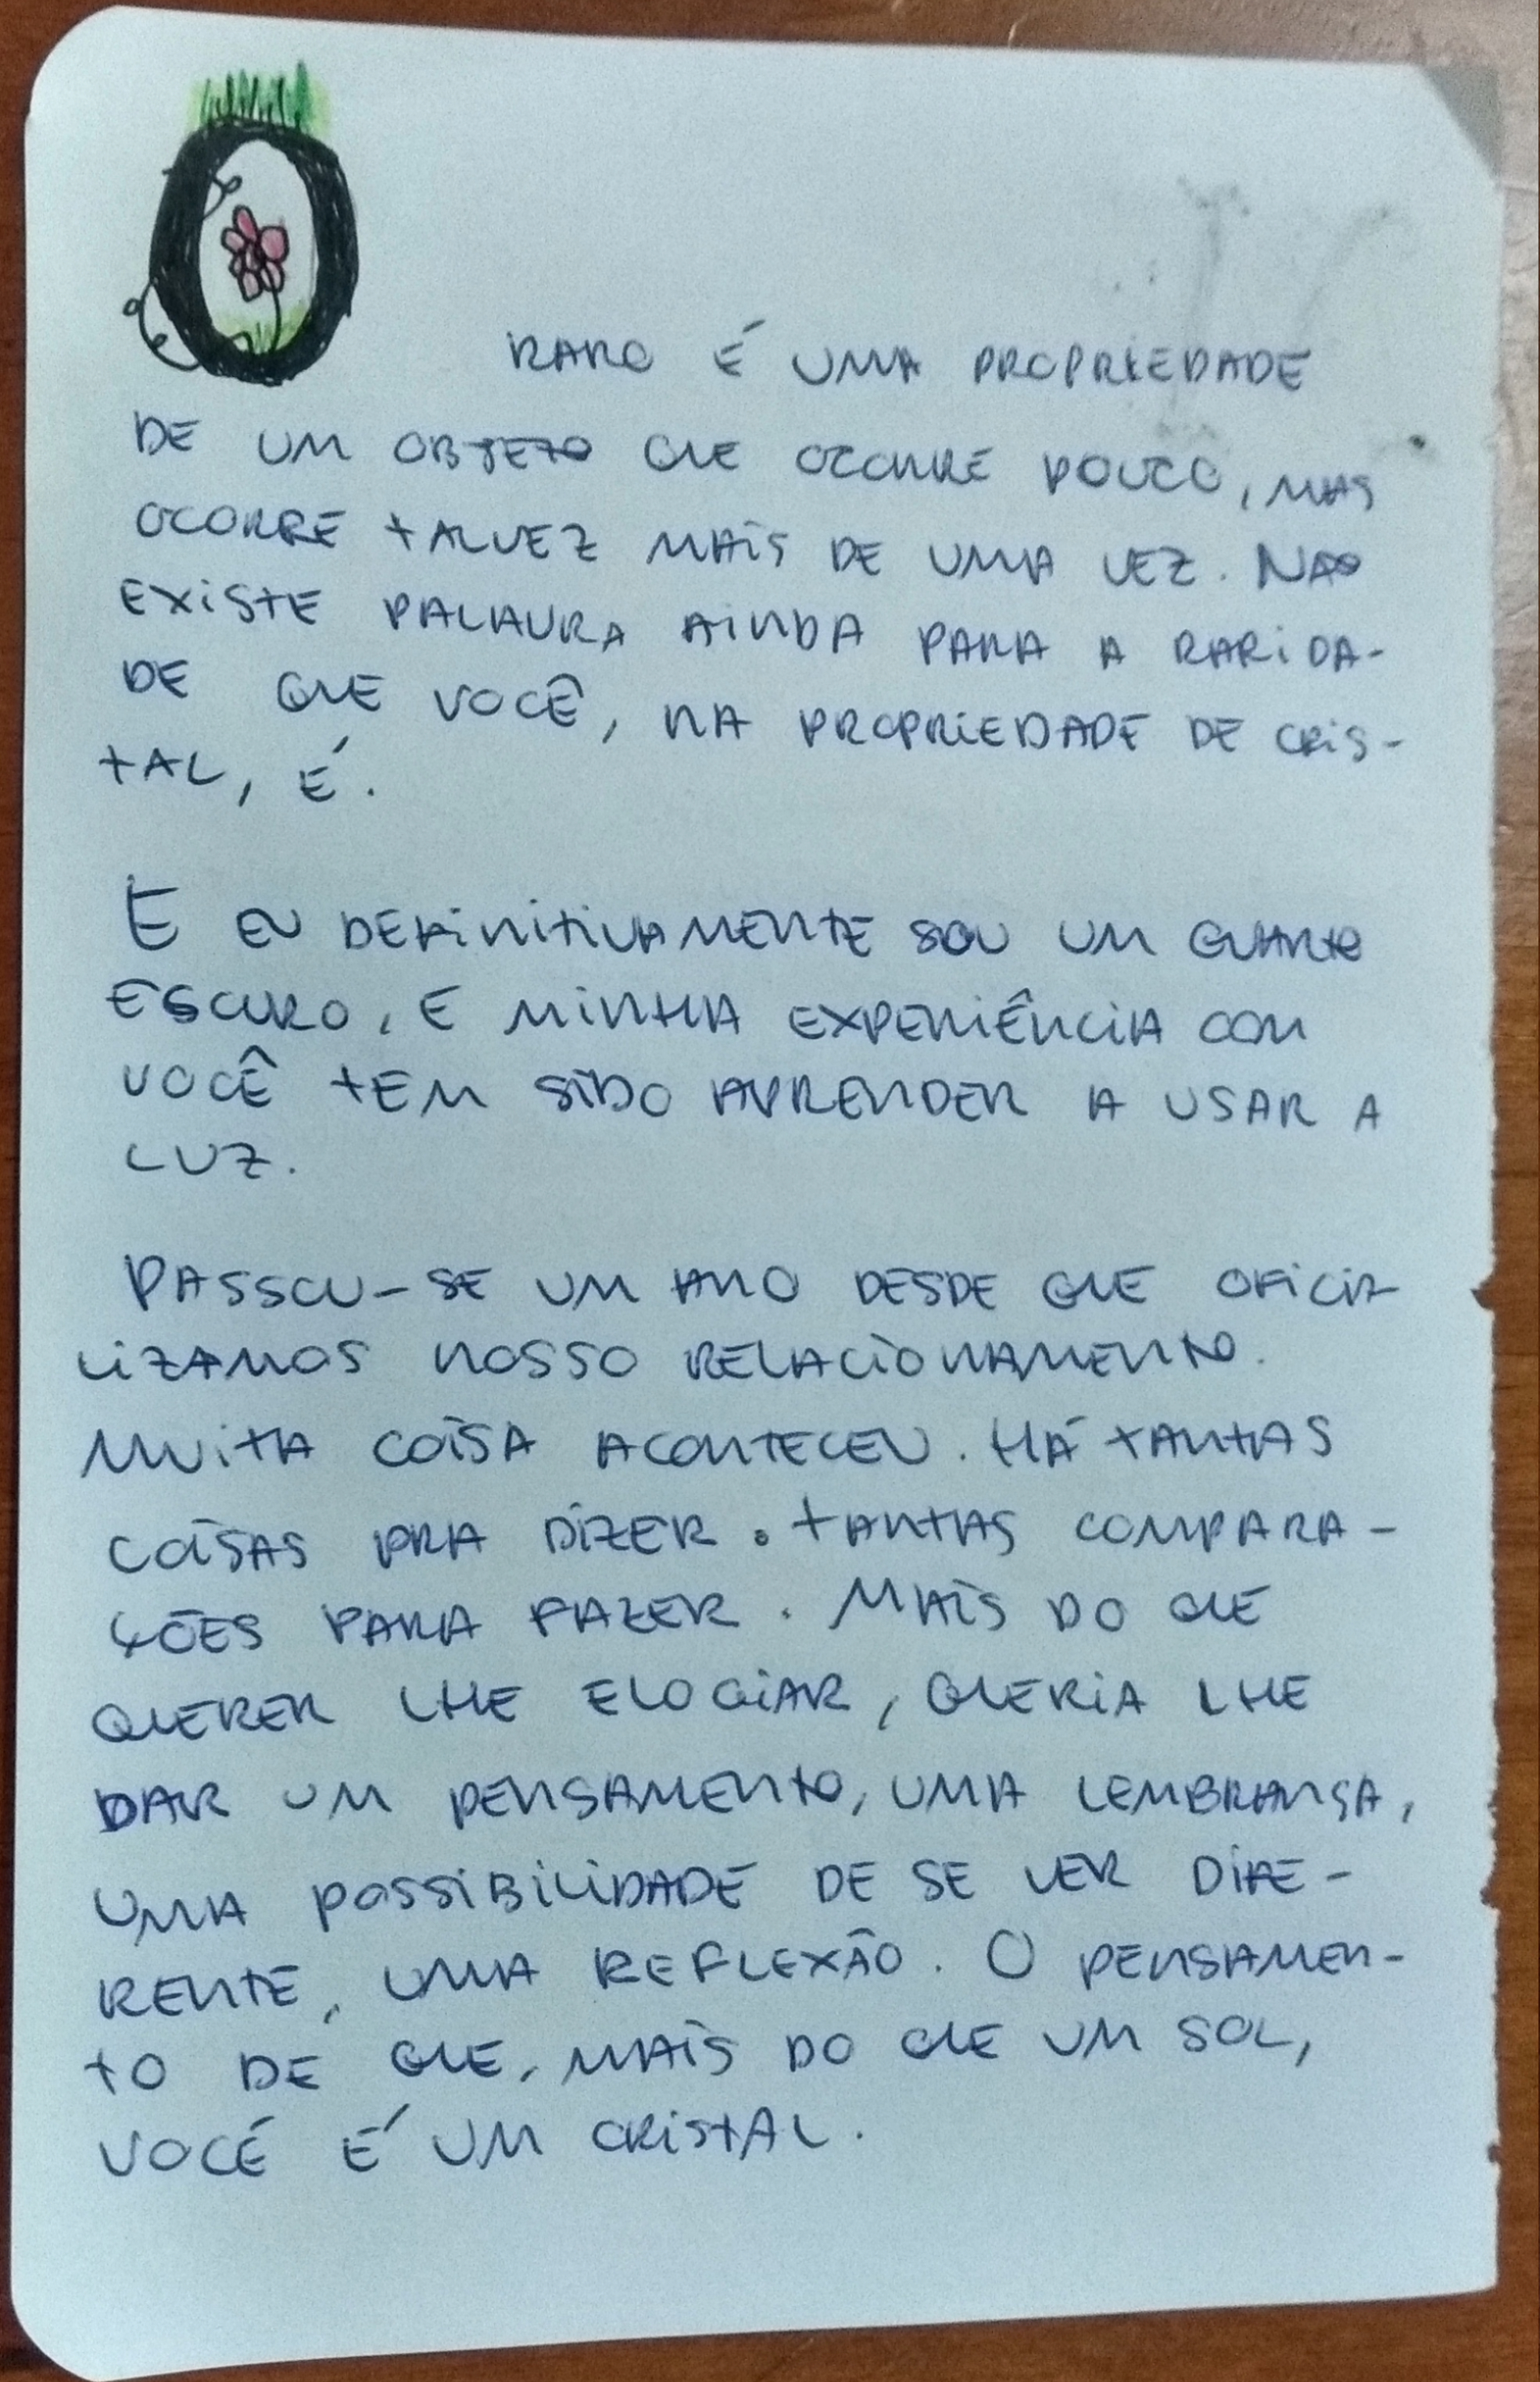 O RARO É UMA PROPRIEDADE
DE UM OBJETO QUE OCORRE POUCO, MAS
OCORRE TALVEZ MAIS DE UMA VEZ. NÃO
EXISTE PALAVRA AINDA PARA A RARIDA-
DE QUE VOCÊ, NA PROPRIEDADE DE CRIS-
TAL, É.
E EU DEFINITIVAMENTE SOU UM QUARTO
ESCURO, E MINHA EXPERIÊNCIA COM
VOCÊ TEM SIDO APRENDER A USAR A
LUZ.
PASSOU-SE UM ANO DESDE QUE OFICIA
LIZAMOS NOSSO RELACIONAMENTO.
MUITA COISA ACONTECEU. HÁ TANTAS
COISAS PRA DIZER. TANTAS COMPARA-
ÇÕES PARA FAZER. MAIS DO QUE
QUERER LHE ELOGIAR, QUERIA LHE
DAR UM PENSAMENTO, UMA LEMBRANÇA,
UMA POSSIBILIDADE DE SE VER DIFE-
RENTE, UMA REFLEXÃO. O PENSAMEN-
TO DE QUE, MAIS DO QUE UM SOL,
VOCÉ É UM CRISTAL.